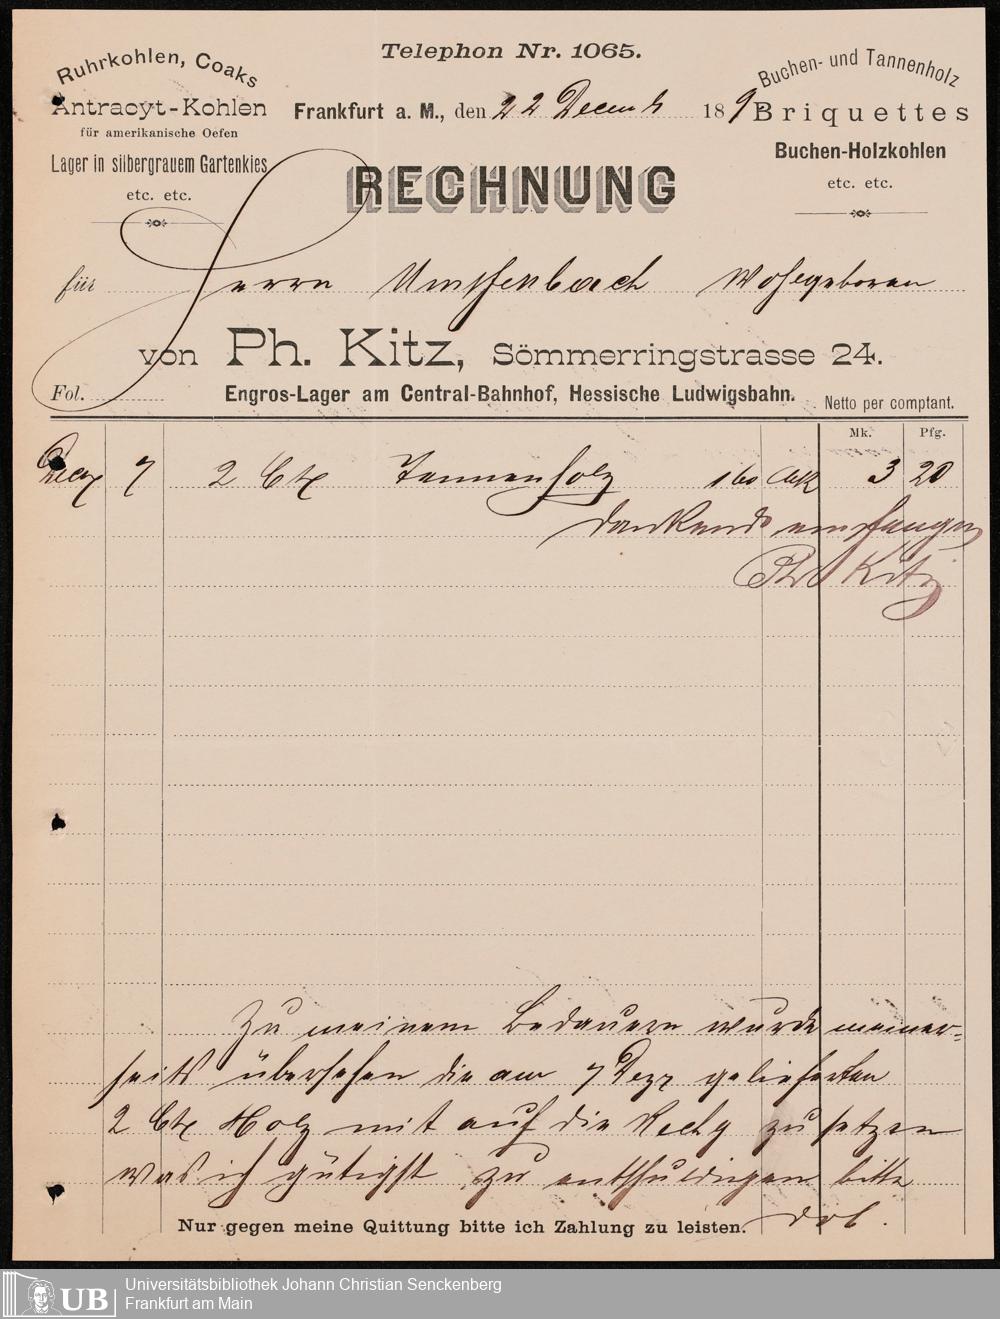 Ruhrkohlen, Coaks
Antracyt-Kohlen
für amerikanische Oefen
Lager in silbergrauem Gartenkies
etc. etc.
Telephon Nr. 1065.
Frankfurt a. M., den 22 Decemb 189
RECHNUNG
Buchen- und Tannenholz
Briquettes
Buchen-Holzkohlen
etc. etc.
für Herrn Umpfenbach Wohlgeboren
von Ph. Kitz, Sömmerringstrasse 24.
Fol. Engros-Lager am Central-Bahnhof, Hessische Ludwigsbahn.
Netto per comptant.
Mk. Pfg.
Decz 7 2 Ctr Tannenholz 160 Mk 3 20
dankend empfangen
Ph Kitz
Zu meinem Bedauern wurde meiner-
seits übersehen die am 7 Dezr gelieferten
2 Ctr Holz mit auf die Rechg zu setzen
was ich gütigst zu entschuldigen bitte
Nur gegen meine Quittung bitte ich Zahlung zu leisten.
dob.
UB
Universitätsbibliothek Johann Christian Senckenberg
Frankfurt am Main